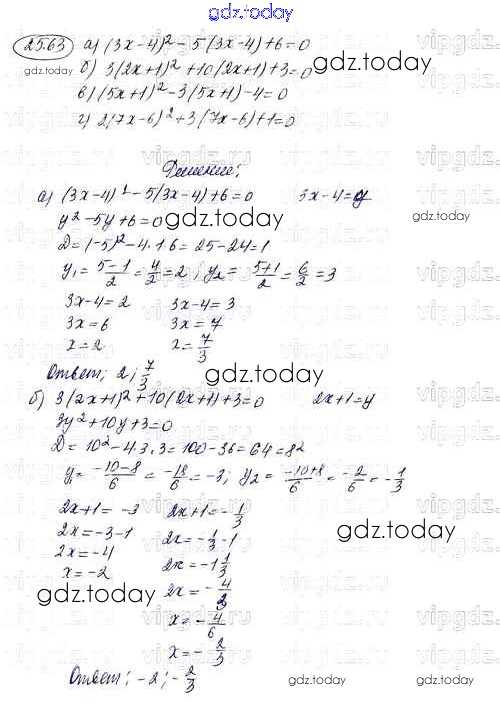 gdz.today
25.63 а) (3x-4)² - 5(3x-4)+6=0
б) 3(2x+1)² + 10(2x+1)+3=0
в) (5x+1)² - 3(5x+1) - 4=0
г) 2(7x-6)² + 3(7x-6)+1=0
Решение:
а) (3x-4)² - 5(3x-4)+6=0 3x-4=y
y² - 5y + 6=0
D=(-5)² - 4·1·6=25-24=1
y₁ = 5-1/2 = 4/2 = 2; y₂ = 5+1/2 = 6/2 = 3
3x-4=2 3x-4=3
3x=6 3x=7
x=2 x=7/3
Ответ: 2; 7/3
б) 3(2x+1)² + 10(2x+1)+3=0 2x+1=y
3y²+10y+3=0
D=10² - 4·3·3=100-36=64=8²
y= -10-8/6 = -18/6 = -3; y₂= -10+8/6 = -2/6 = -1/3
2x+1=-3 2x+1=-1/3
2x=-3-1 2x=-1/3-1
2x=-4 2x=-1 1/3
x=-2 2x=-4/3
x=-4/6
x=-2/3
Ответ: -2; -2/3
gdz.today
gdz.today
gdz.today
gdz.today
gdz.today
gdz.today
gdz.today
gdz.today
gdz.today
gdz.today
vipgdz